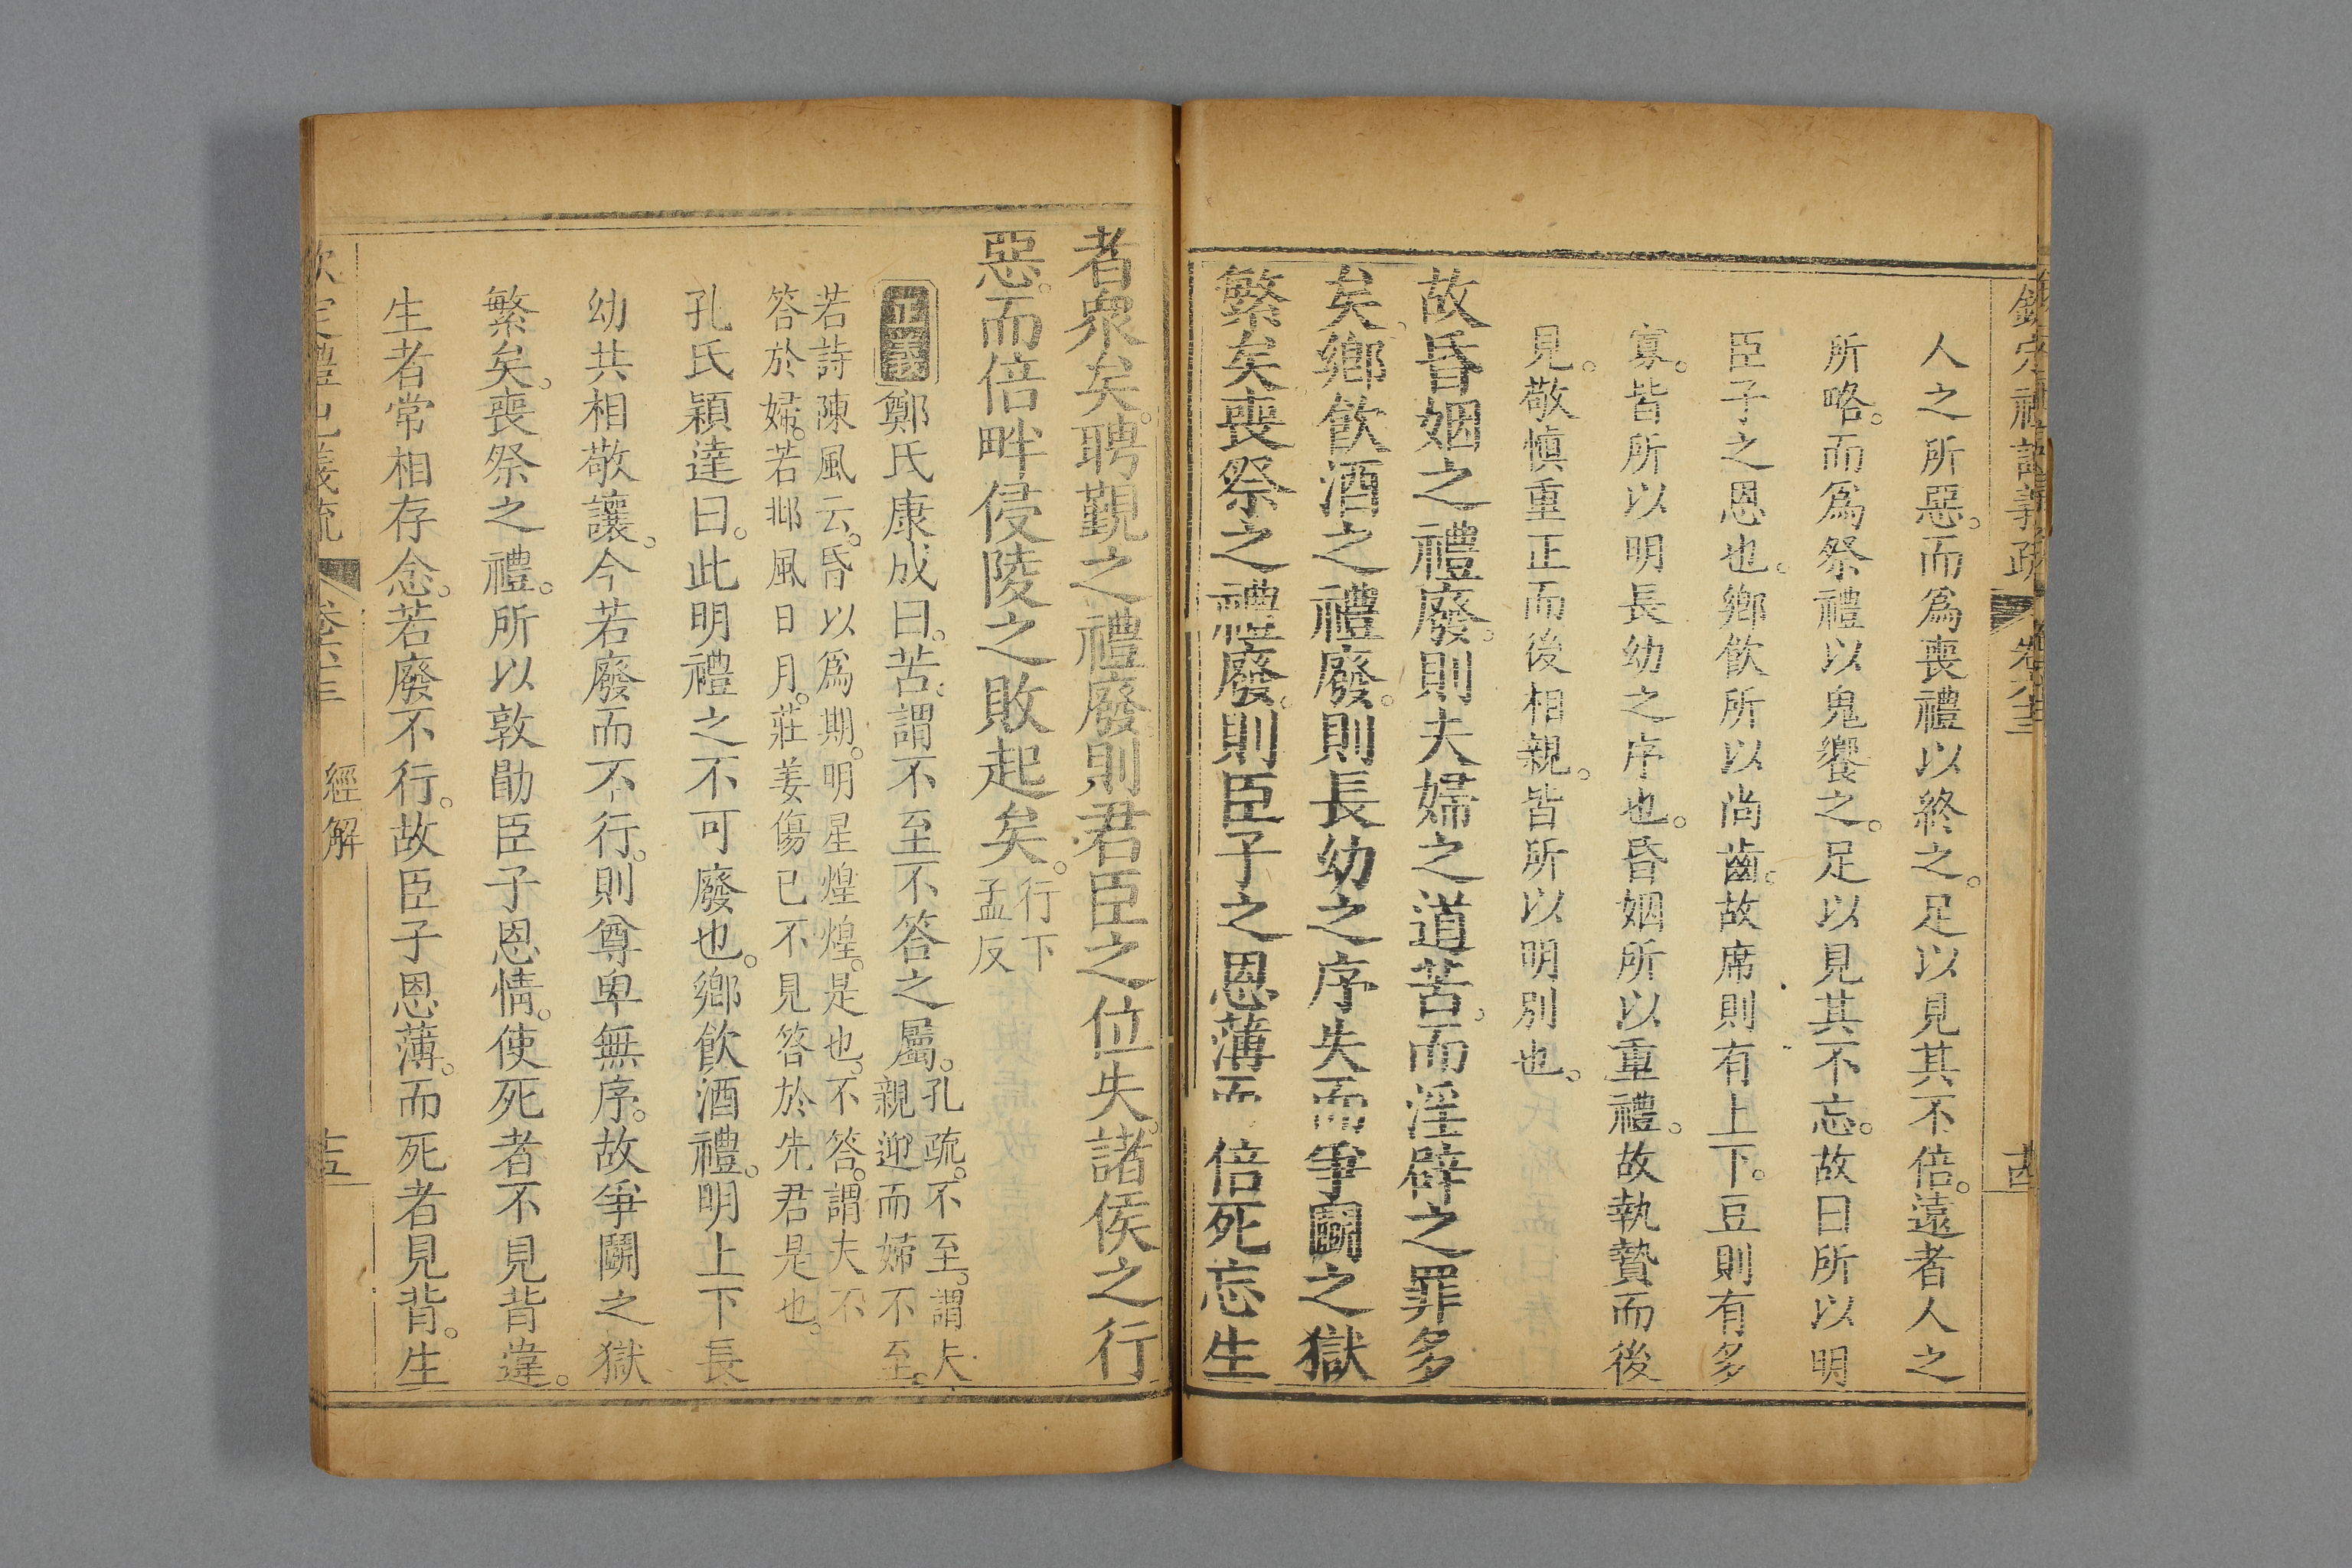 欽定禮記義疏 卷六十三 十四
人之所惡。而爲喪禮以終之。足以見其不倍。遠者人之
所略。而爲祭禮以鬼饗之。足以見其不忘。故曰所以明
臣子之恩也。鄉飲所以尚齒。故席則有上下。豆則有多
寡。皆所以明長幼之序也。昏姻所以重禮。故執贄而後
見。敬愼重正而後相親。皆所以明別也。
故昏姻之禮廢。則夫婦之道苦。而淫辟之罪多
矣。鄉飲酒之禮廢。則長幼之序失。而爭鬭之獄
繁矣。喪祭之禮廢。則臣子之恩薄。而倍死忘生
者衆矣。聘覲之禮廢。則君臣之位失。諸侯之行
惡。而倍畔侵陵之敗起矣。行下
孟反
正義 鄭氏康成曰。苦。謂不至不答之屬。孔疏。不至。謂夫
親迎而婦不至。
若詩陳風云。昏以爲期。明星煌煌。是也。不答。謂夫不
答於婦。若邶風日月。莊姜傷已不見答於先君是也。
孔氏穎達曰。此明禮之不可廢也。鄉飲酒禮。明上下長
幼共相敬讓。今若廢而不行。則尊卑無序。故爭鬭之獄
繁矣。喪祭之禮。所以敦勖臣子恩情。使死者不見背違。
生者常相存念。若廢不行。故臣子恩薄。而死者見背。生
欽定禮記義疏 卷六十三 經解 十五